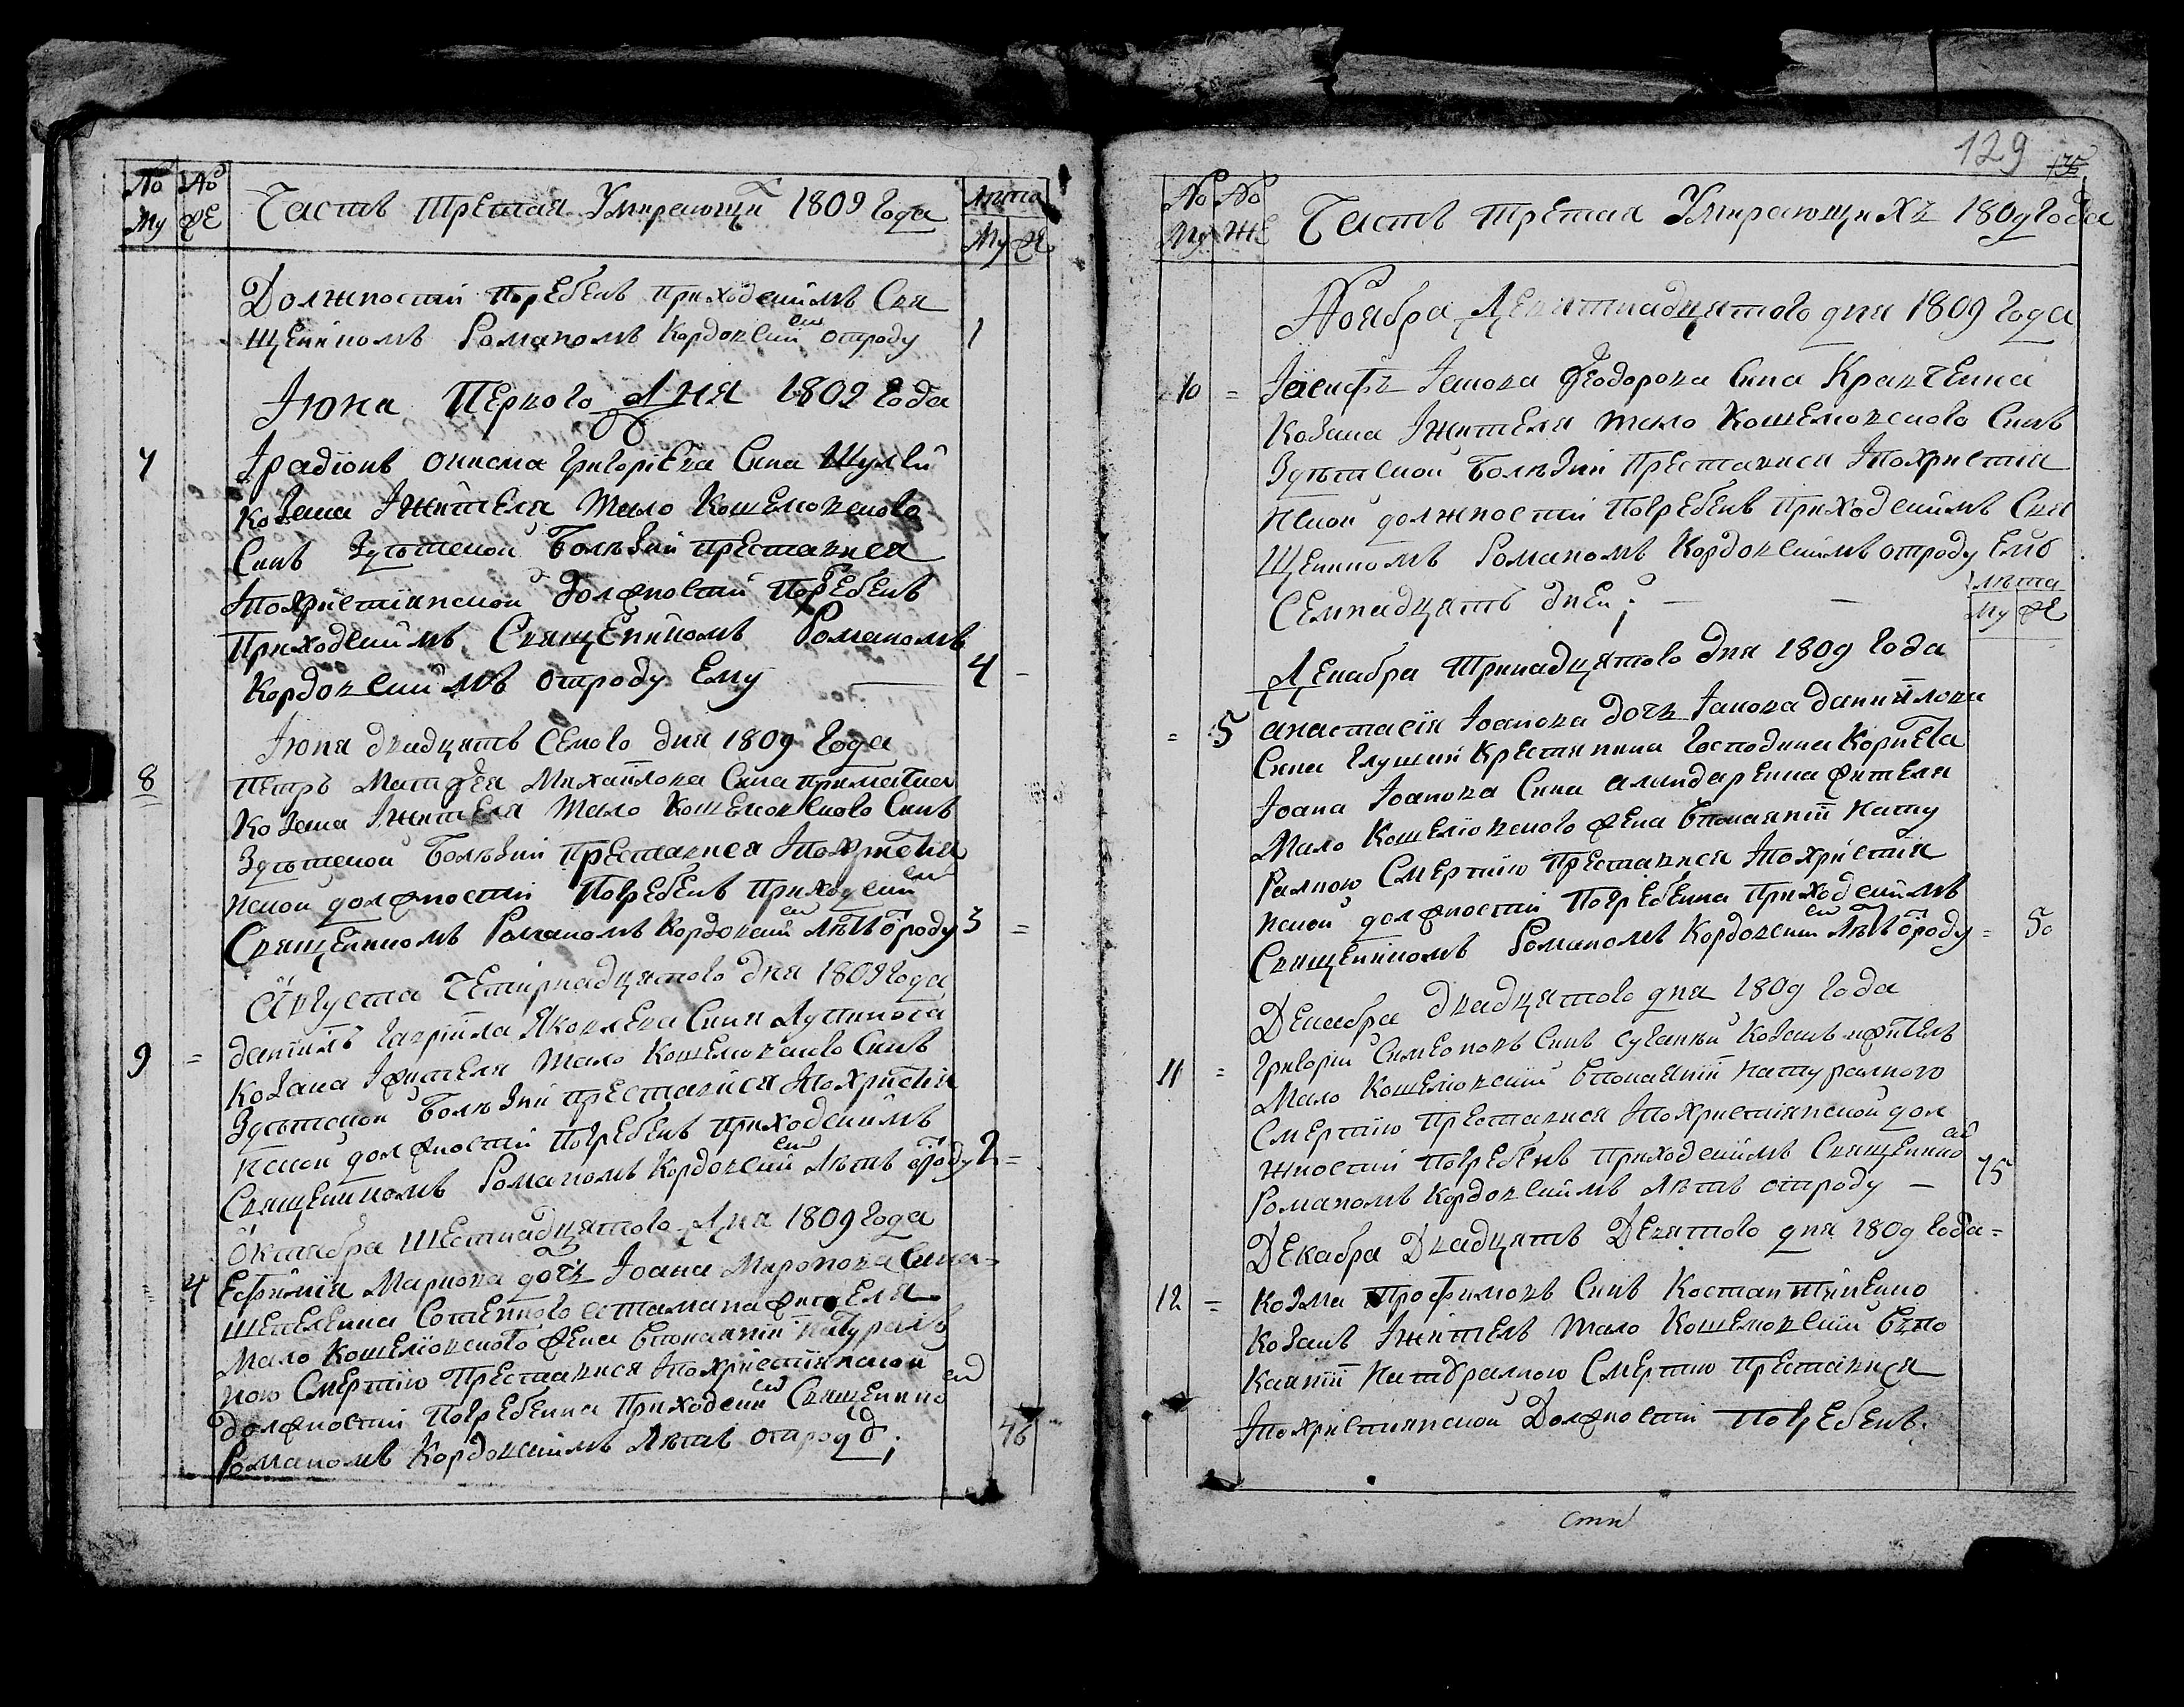 № № Часть третая Умирающи 1809 года лѣта
Му же Му же
Должности погребенъ приходскимъ Свя
щенникомъ Романомъ Кордовскимъ отроду 1
Июна Первого Дня 1809 года
7 Ирадионъ онисма григориева Сина Шулги
Козака Ижителя мало Кошелювского
Синъ Здѣтской Болѣзни преставися
Ипохристианской должности погребенъ
Приходскимъ Священникомъ Романомъ
Кордовскимъ отроду Ему 4
Июня двадцять Семого дня 1809 года
8 Петръ Матфея Михайлова Сина
Козака Ижителя мало Кошелювского Синъ
Здѣтской Болѣзни преставися Ипохристия
нской должности Погребенъ приходским
Священникомъ Романомъ Кордовским лѣтъ ороду 3
Августа Четирнадцятого дня 1809 года
9 = данiилъ гаврiила Яковлева Сина
Козака Ижителя мало Кошелювского Синъ
Здѣтской Болѣзни преставися Ипохристия
нской должности погребенъ приходскимъ
Священникомъ Романомъ Кордовским лѣтъ ороду 2 =
Октября шестнадцятого Дня 1809 года
= 4 Ефимiя Маркова дочъ Иоана Миронова Сина =
Сотенного атамана жителя
Мало Кошелювского жена впокаянiи натурал
ною Смертию Преставися Ипохристиянской
должности Погребенна Приходским Священнико
Романомъ Кордовскимъ лѣтъ отроду; 46
129
№ № Часть третая Умирающихъ 1809 года
Му же
Ноября Девятнадцятого дня 1809 года
10 = Иосифъ Иакова Феодорова Сина Кравченка
Козака Ижителя мало Кошелювского Синъ
Здѣтской Болѣзни Преставися Ипохристия
нской должности Погребенъ Приходскимъ Свя
щенникомъ Романомъ Кордовскимъ отроду Ему
Семнадцять дней; — — лѣта
Му же
Декабря Тринадцятого дня 1809 года
= 5 анастасiя Иоанова дочъ Иакова данийлова
Сина Глушки Крестянина господина Корнета
Иоана Иоанова Сина жителя
Мало Кошелювского жена впокаянiи нату
ралною Смертiю Преставися Ипохристiя
нской должности Погребенна Приходскимъ
Священникомъ Романомъ Кордовским лѣтъ ороду = 50
Декабра двадцятого дня 1809 года
11 = григорий Симеоновъ Синъ Козакъ ижитель
Мало Кошелювский впокаянiи натуралною
Смертiю Преставися Ипохристiянской дол
жности погребенъ приходскимъ Священнико
Романомъ Кордовскимъ лѣтъ отроду — 75
Декабра Двадцять Девятого дня 1809 года =
12 = Козма Трофимовъ Синъ
Козакъ Ижитель мало Кошелювский впо
каянiи натуралною Смертию преставися
Ипохристиянской Должности погребенъ.